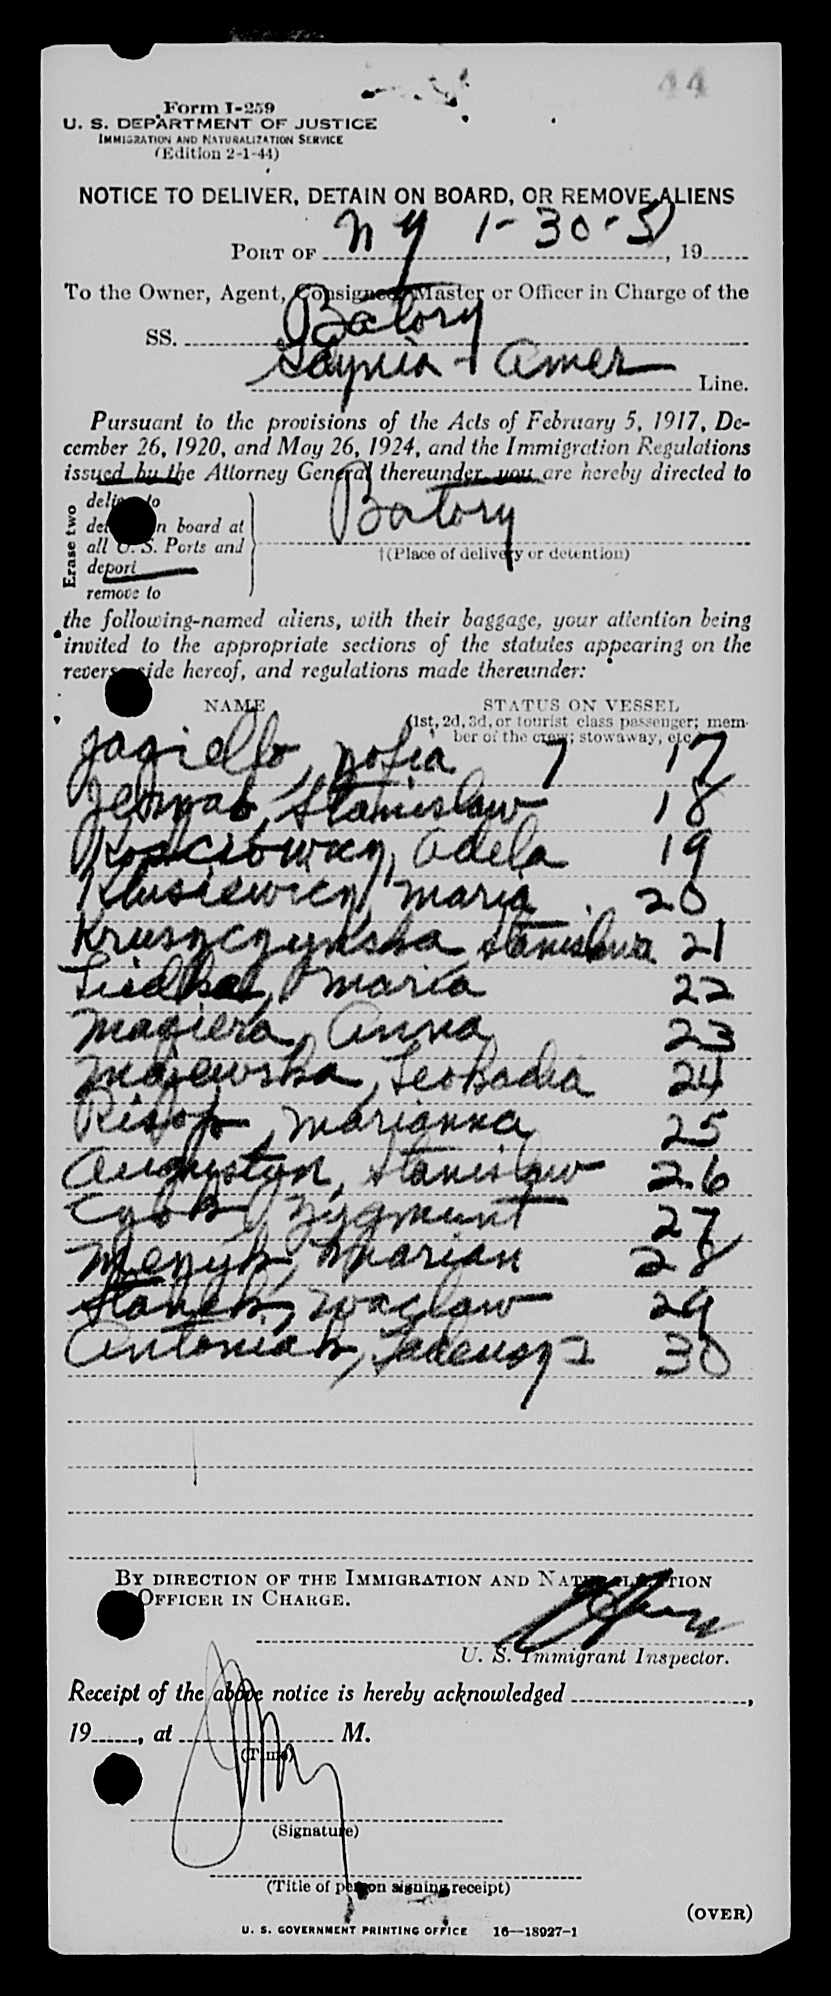 44
Form I-259
U. S. DEPARTMENT OF JUSTICE
IMMIGRATION AND NATURALIZATION SERVICE
(Edition 2-1-44)
NOTICE TO DELIVER, DETAIN ON BOARD, OR REMOVE ALIENS
PORT OF N Y 1-30-51, 19
To the Owner, Agent, Consignee, Master or Officer in Charge of the
SS. Batory
Gdynia - Amer Line.
Pursuant to the provisions of the Acts of February 5, 1917, De-
cember 26, 1920, and May 26, 1924, and the Immigration Regulations
issued by the Attorney General thereunder, you are hereby directed to
Erase two
deliver to
detain on board at
all U. S. Ports and
deport
remove to
Batory
†(Place of delivery or detention)
the following-named aliens, with their baggage, your attention being
invited to the appropriate sections of the statutes appearing on the
reverse side hereof, and regulations made thereunder:
NAME STATUS ON VESSEL
(1st, 2d, 3d, or tourist class passenger; mem-
ber of the crew; stowaway, etc.)
Jagiello, Zofia 7 17
Stanislaw 18
Adela 19
Maria 20
Kruszczynska Stanislawa 21
Maria 22
Magiera, Anna 23
Majewska, Leokadia 24
Marianna 25
Augustyn, Stanislaw 26
Zygmunt 27
Menzyk, Marian 28
Stanek, Waclaw 29
Antoniak, Tadeusz 2 30
BY DIRECTION OF THE IMMIGRATION AND NATURALIZATION
OFFICER IN CHARGE.
U. S. Immigrant Inspector.
Receipt of the above notice is hereby acknowledged ,
19 , at M.
(Time)
(Signature)
(Title of person signing receipt)
(OVER)
U. S. GOVERNMENT PRINTING OFFICE 16—18927-1